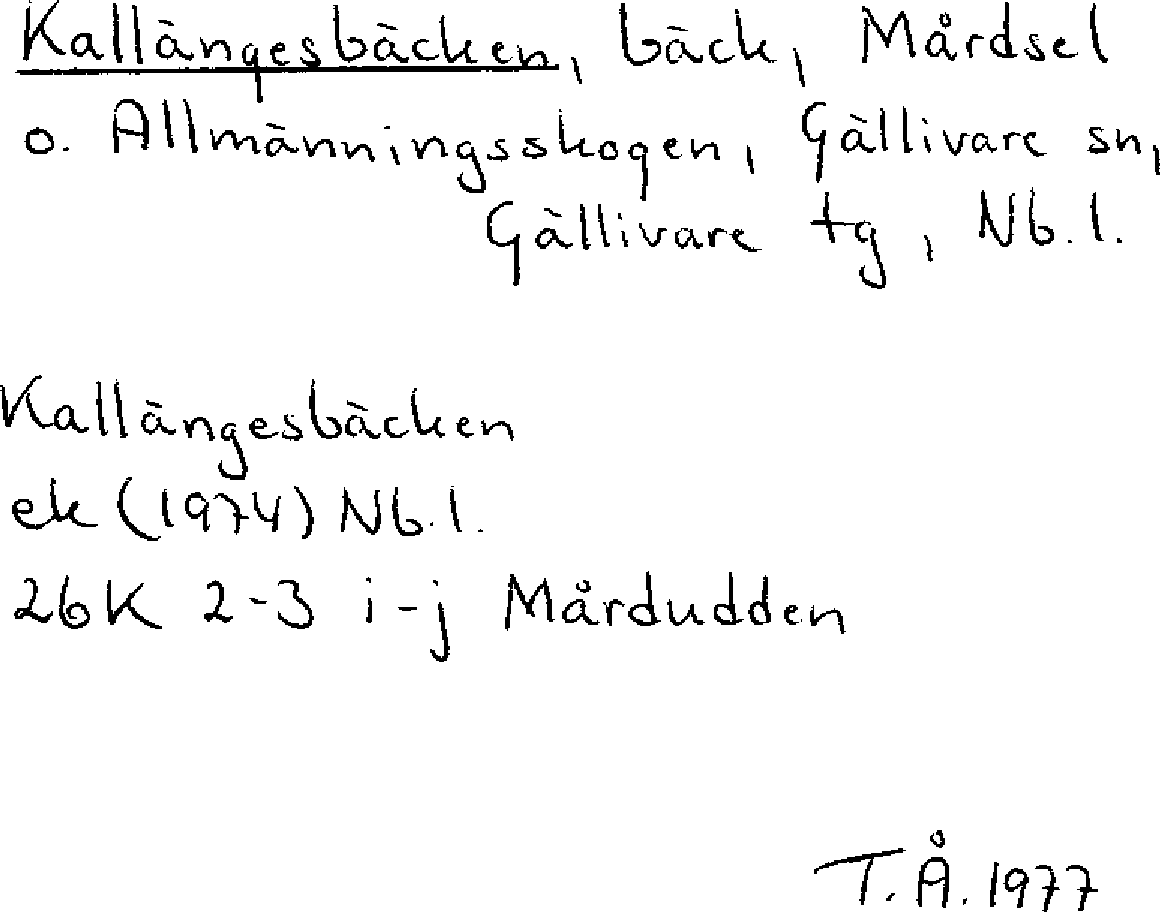 Kallängesbäcken, bäck, Mårdsel
o. Allmänningsskogen, Gällivare sn,
Gällivare tg, Nb.l.
Kallängesbäcken
ek (1974) Nb.l.
26K 2-3 i-j Mårdudden
T.Å.1977